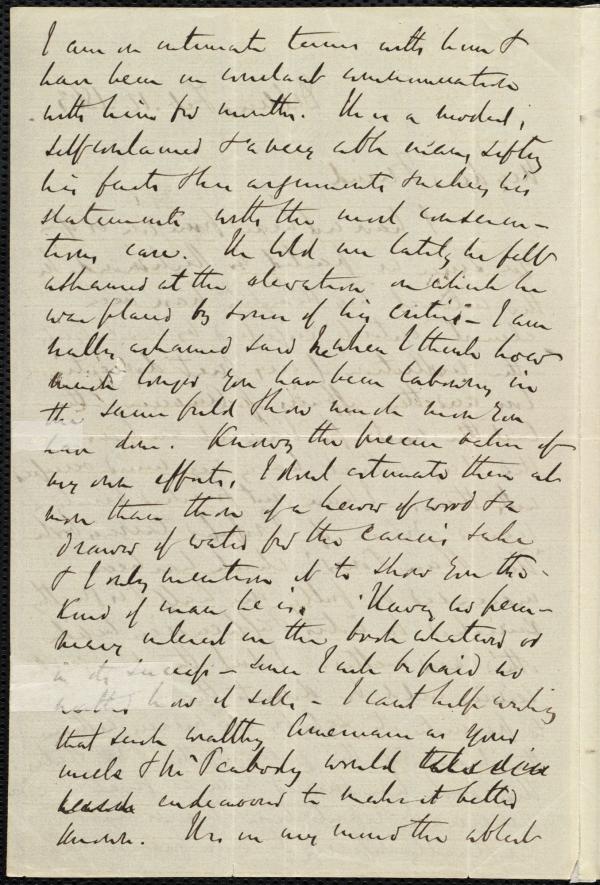 I am on intimate terms with him &
have been in constant communication
with him for months. He is a modest,
self contained & a very able man, sifting
his facts & his arguments & making his
statements with the most conscien-
tious care. He told me lately he felt
ashamed at the elevation on which he
was placed by some of his critics – I am
really ashamed said he when I think how
much longer you have been labouring in
the same field & how much more you
have done. Knowing the precise value of
my own efforts, I dont estimate them at
more than those of a hewer of wood & a
drawer of water for the cause's sake
& I only mention it to show you the
kind of man he is. Having no pecu-
niary interest in the book whatever or
in its success – since I am to be paid no
matter how it sells – I cant help wishing
that such wealthy Americans as your
uncle & Mr Peabody would
endeavour to make it better
known. It is in my mind the ablest